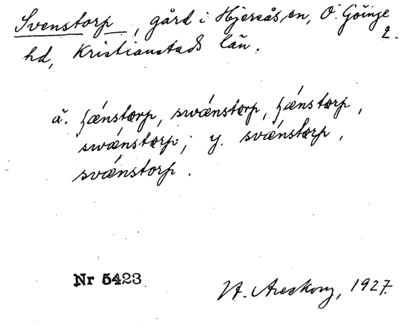 Svenstorp, gård i Hjersås sn, Ö. Göinge
hd, Kristianstads län.
2.
ä. sænstorp, swænstorp, sænstorp,
swænstorp; y. svænstorp,
svænstorp.
Nr 5423
H. Areskog, 1927.